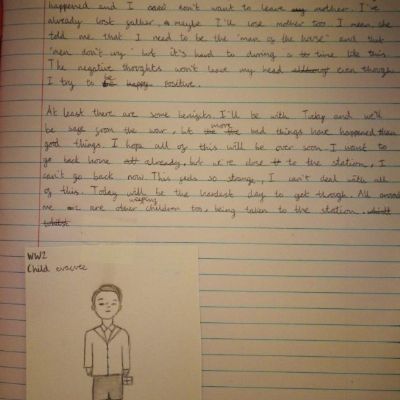 happened and I don't want to leave my mother. I've
already lost father, & maybe I'll lose mother too. I mean she
told me that I need to be the "man of the house" and that
"men don't cry" but it's hard to during a time like this.
The negative thoughts won't leave my head even though
I try to be positive.
At least there are some benefits. I'll be with Tudy and we'll
be safe from the war, but more bad things have happened than
good things. I hope all of this will be over soon. I want to
go back home already, but we're close to the station, I
can't go back now. This feels so strange, I can't deal with all
of this. Today will be the hardest day to get through. All around
me are other weeping children too, being taken to the station.
WW2
Child evacuee